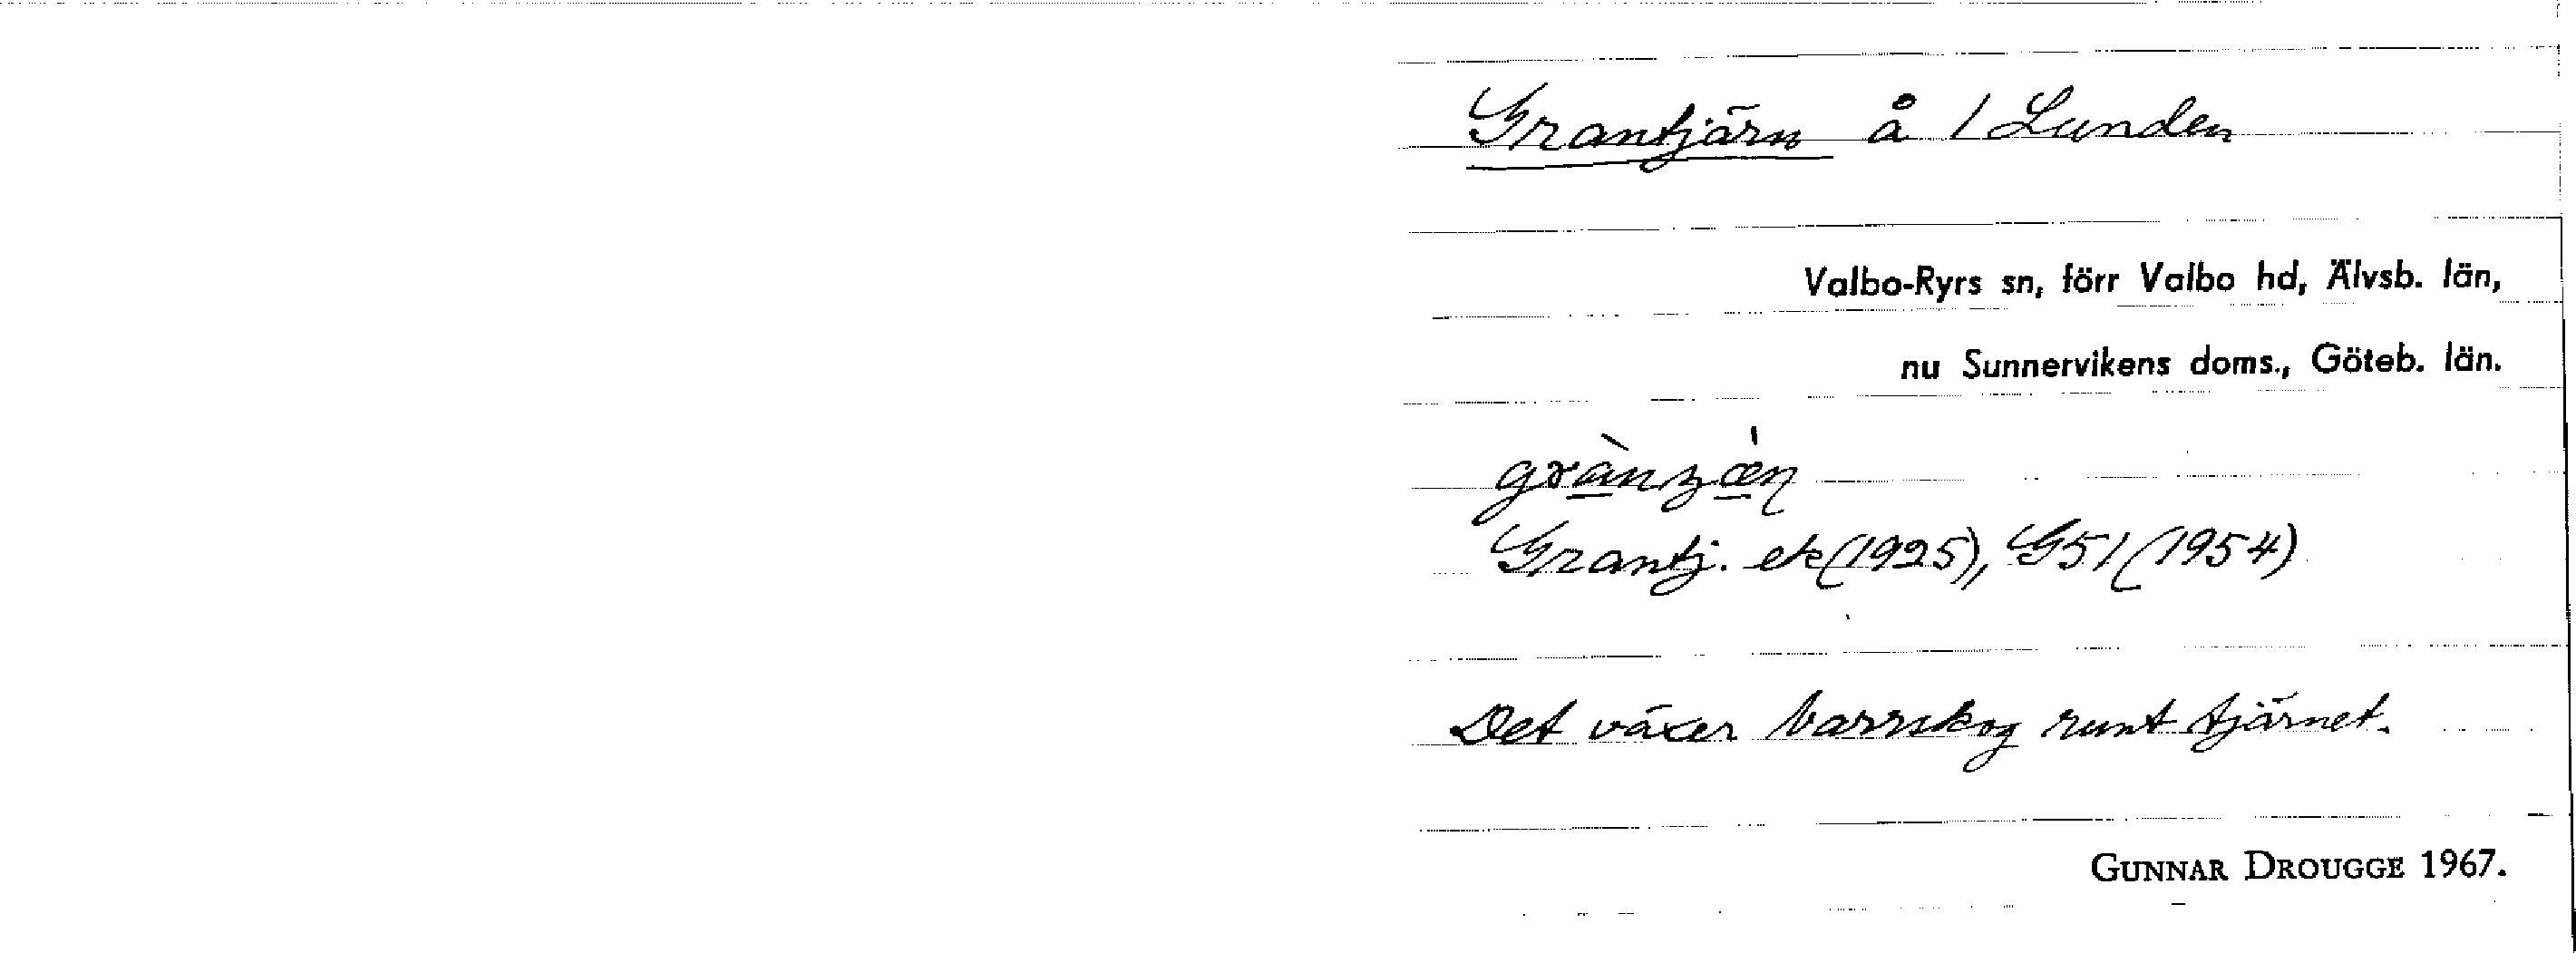 Grantjärn å 1 Lunden
Valbo-Ryrs sn, förr Valbo hd, Älvsb. län,
nu Sunnervikens doms., Göteb. län.
Grantj. ek (1925), G51 (1954)
Det växer barrskog runt tjärnet.
GUNNAR DROUGGE 1967.